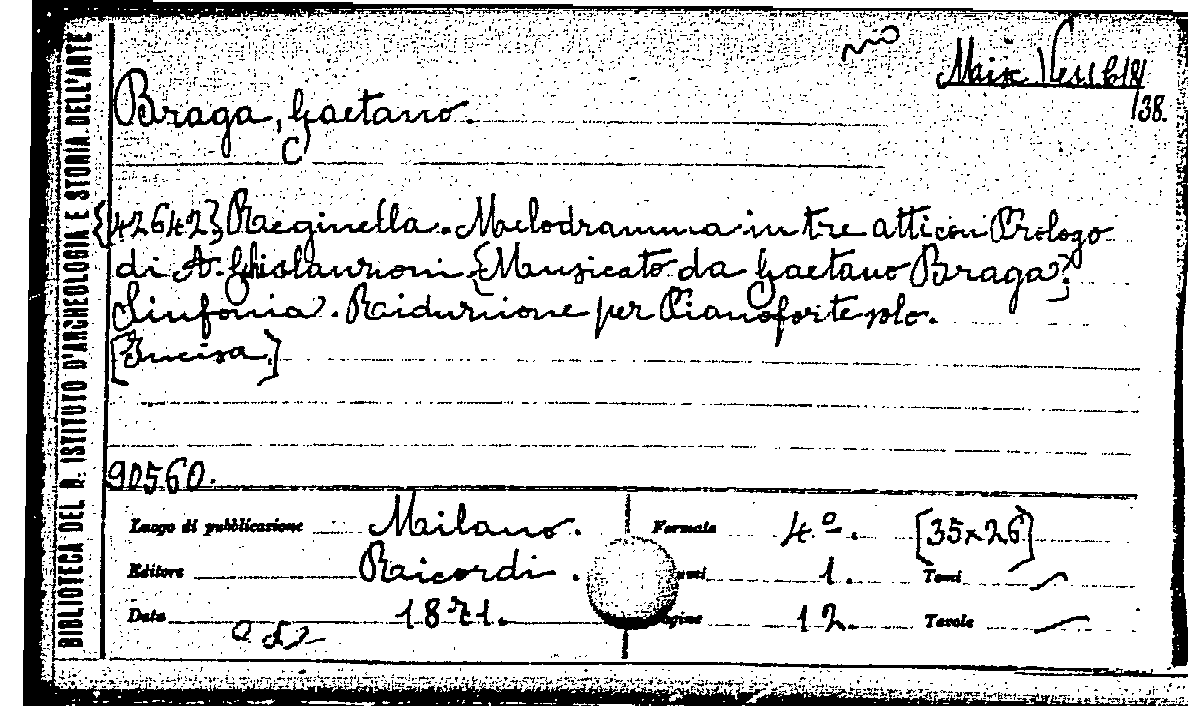 BIBLIOTECA DEL R. ISTITUTO D'ARCHEOLOGIA E STORIA DELL'ARTE
Braga, Gaetano.
/38.
{42642} Reginella. Melodramma in tre atti con Prologo
di A. Ghislanzoni {Musicato da Gaetano Braga};
Sinfonia. Riduzione per Pianoforte solo.
[Incisa.]
90560.
Luogo di pubblicazione Milano. Formato 4º. [35x26]
Editore Ricordi. 1. Tomi
Data 1871. 12. Tavole